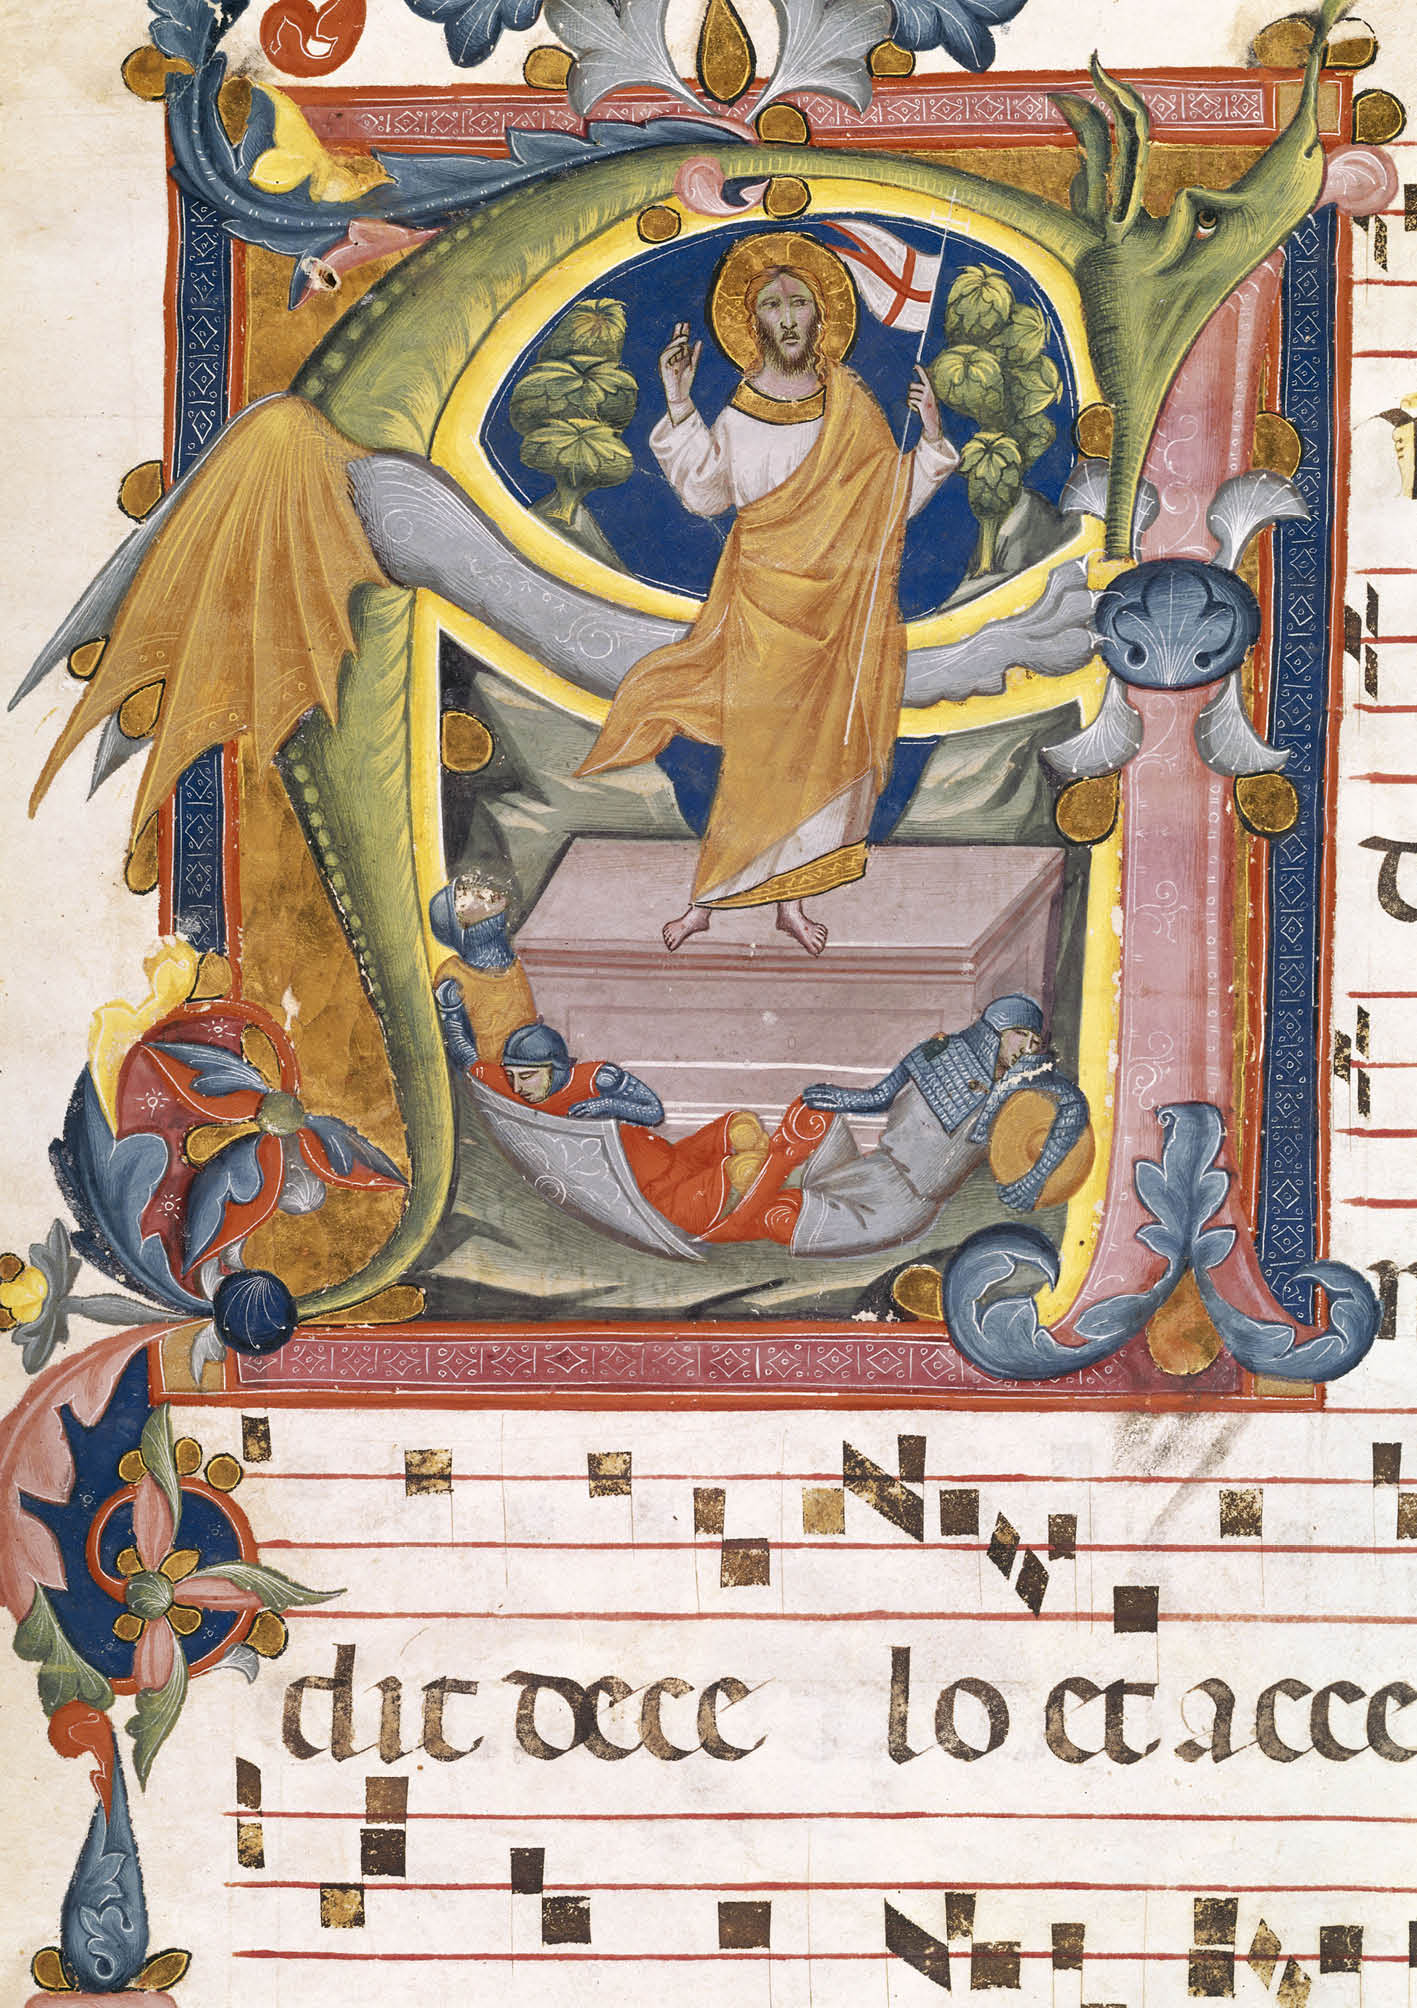 A
d
dit de ce lo et acce